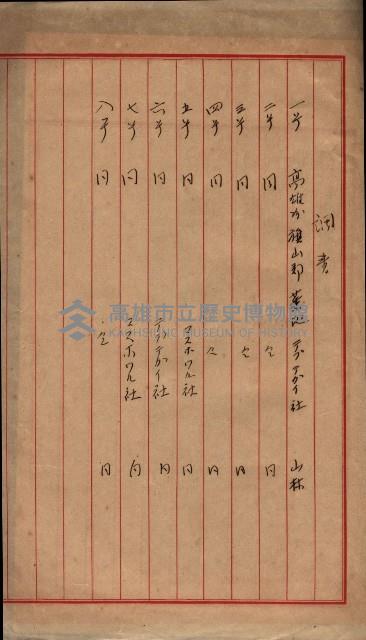 調書
一号 高雄州旗山郡蕃地 ガイ社 山林
二号 同 々 同
三号 同 々 同
四号 同 々 同
五号 同 マスホワル社 同
六号 同 社 同
七号 同 マスホワル社 同
八号 同 々 同
高雄市立歷史博物館
KAOHSIUNG MUSEUM OF HISTORY